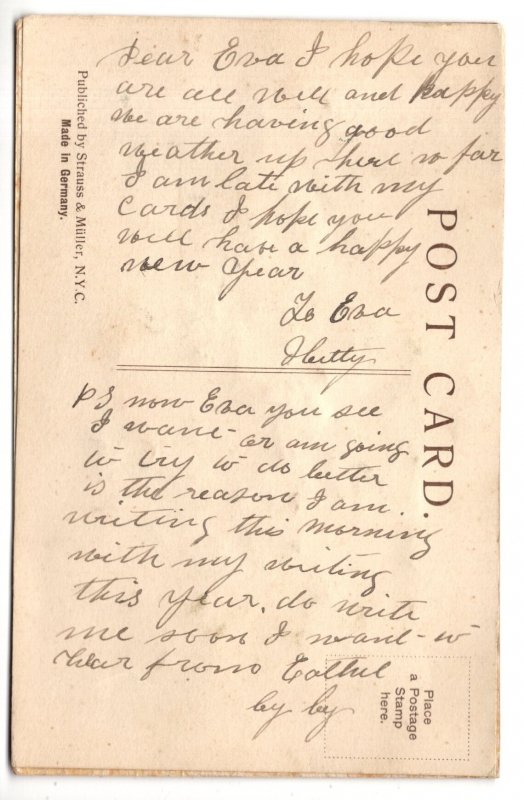 Dear Eva I hope you
are all well and happy
we are having good
weather up here so far
I am late with my
Cards I hope you
will have a happy
new Year
To Eva
Hetty
PS now Eva you see
I want or am going
to try to do better
is the reason I am.
writing this morning
with my writing
this year. do write
me soon I want to
hear from
by by
POST CARD.
Publiched by Strauss & Müller, N.Y.C.
Made in Germany.
Place
a Postage
Stamp
here.